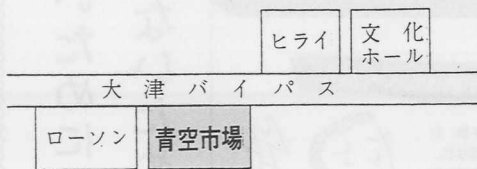 ヒライ
文化
ホール
大津バイパス
ローソン
青空市場